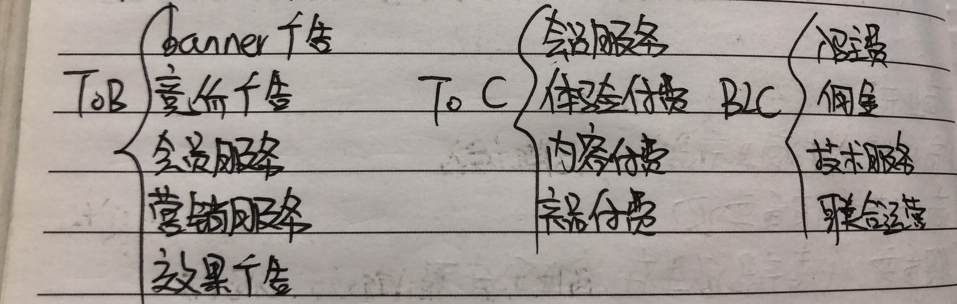 ToB
banner 广告
竞价广告
会员服务
营销服务
效果广告
To C
会员服务
体验付费
内容付费
商品付费
B2C
佣金
技术服务
联合运营